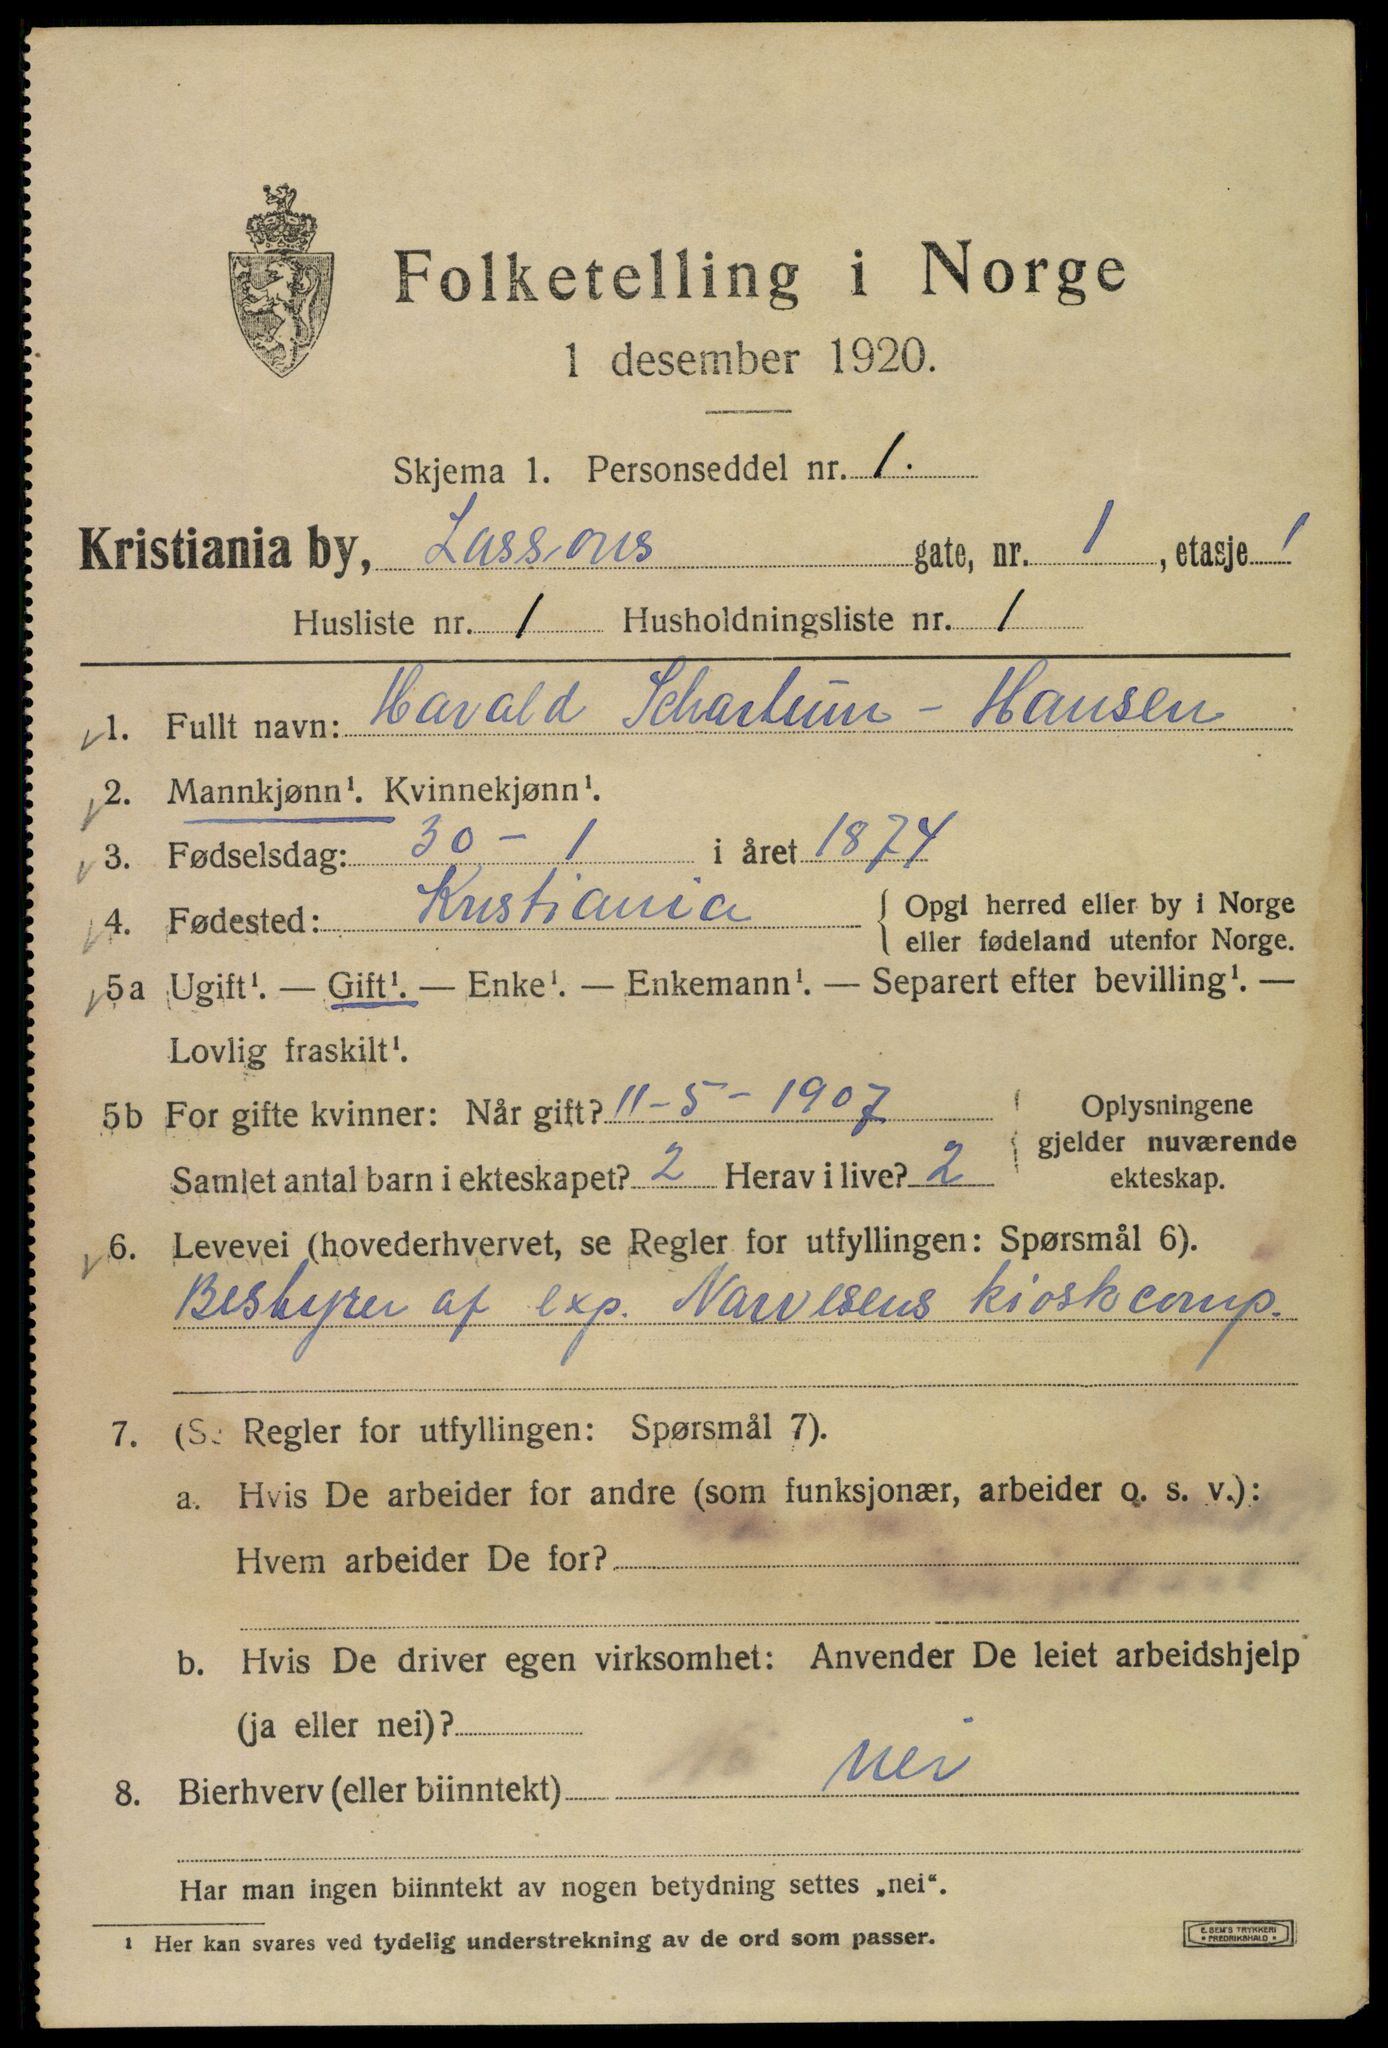 Folketelling i Norge
1 desember 1920.
Skjema 1. Personseddel nr. 1.
Kristiania by, Lassons gate, nr. 1, etasje 1
Husliste nr. 1 Husholdningsliste nr. 1
1. Fullt navn: Harald Schartum - Hansen
2. Mannkjønn¹. Kvinnekjønn¹.
3. Fødselsdag: 30 - 1 i året 1874
4. Fødested: Kristiania { Opgi herred eller by i Norge
eller fødeland utenfor Norge.
5a Ugift¹. — Gift¹. — Enke¹. — Enkemann¹. — Separert efter bevilling¹. —
Lovlig fraskilt¹.
5b For gifte kvinner: Når gift? 11-5-1907 Oplysningene
gjelder nuværende
Samlet antal barn i ekteskapet? 2 Herav i live? 2 ekteskap.
6. Levevei (hovederhvervet, se Regler for utfyllingen: Spørsmål 6).
Bestyrer af exp. Narvesens kioskcomp.
7. (Se Regler for utfyllingen: Spørsmål 7).
a. Hvis De arbeider for andre (som funksjonær, arbeider o. s. v.):
Hvem arbeider De for?
b. Hvis De driver egen virksomhet: Anvender De leiet arbeidshjelp
(ja eller nei)?
8. Bierhverv (eller biinntekt) nei
Har man ingen biinntekt av nogen betydning settes „nei“.
¹ Her kan svares ved tydelig understrekning av de ord som passer.
E. SEM'S TRYKKERI
• FREDRIKSHALD •